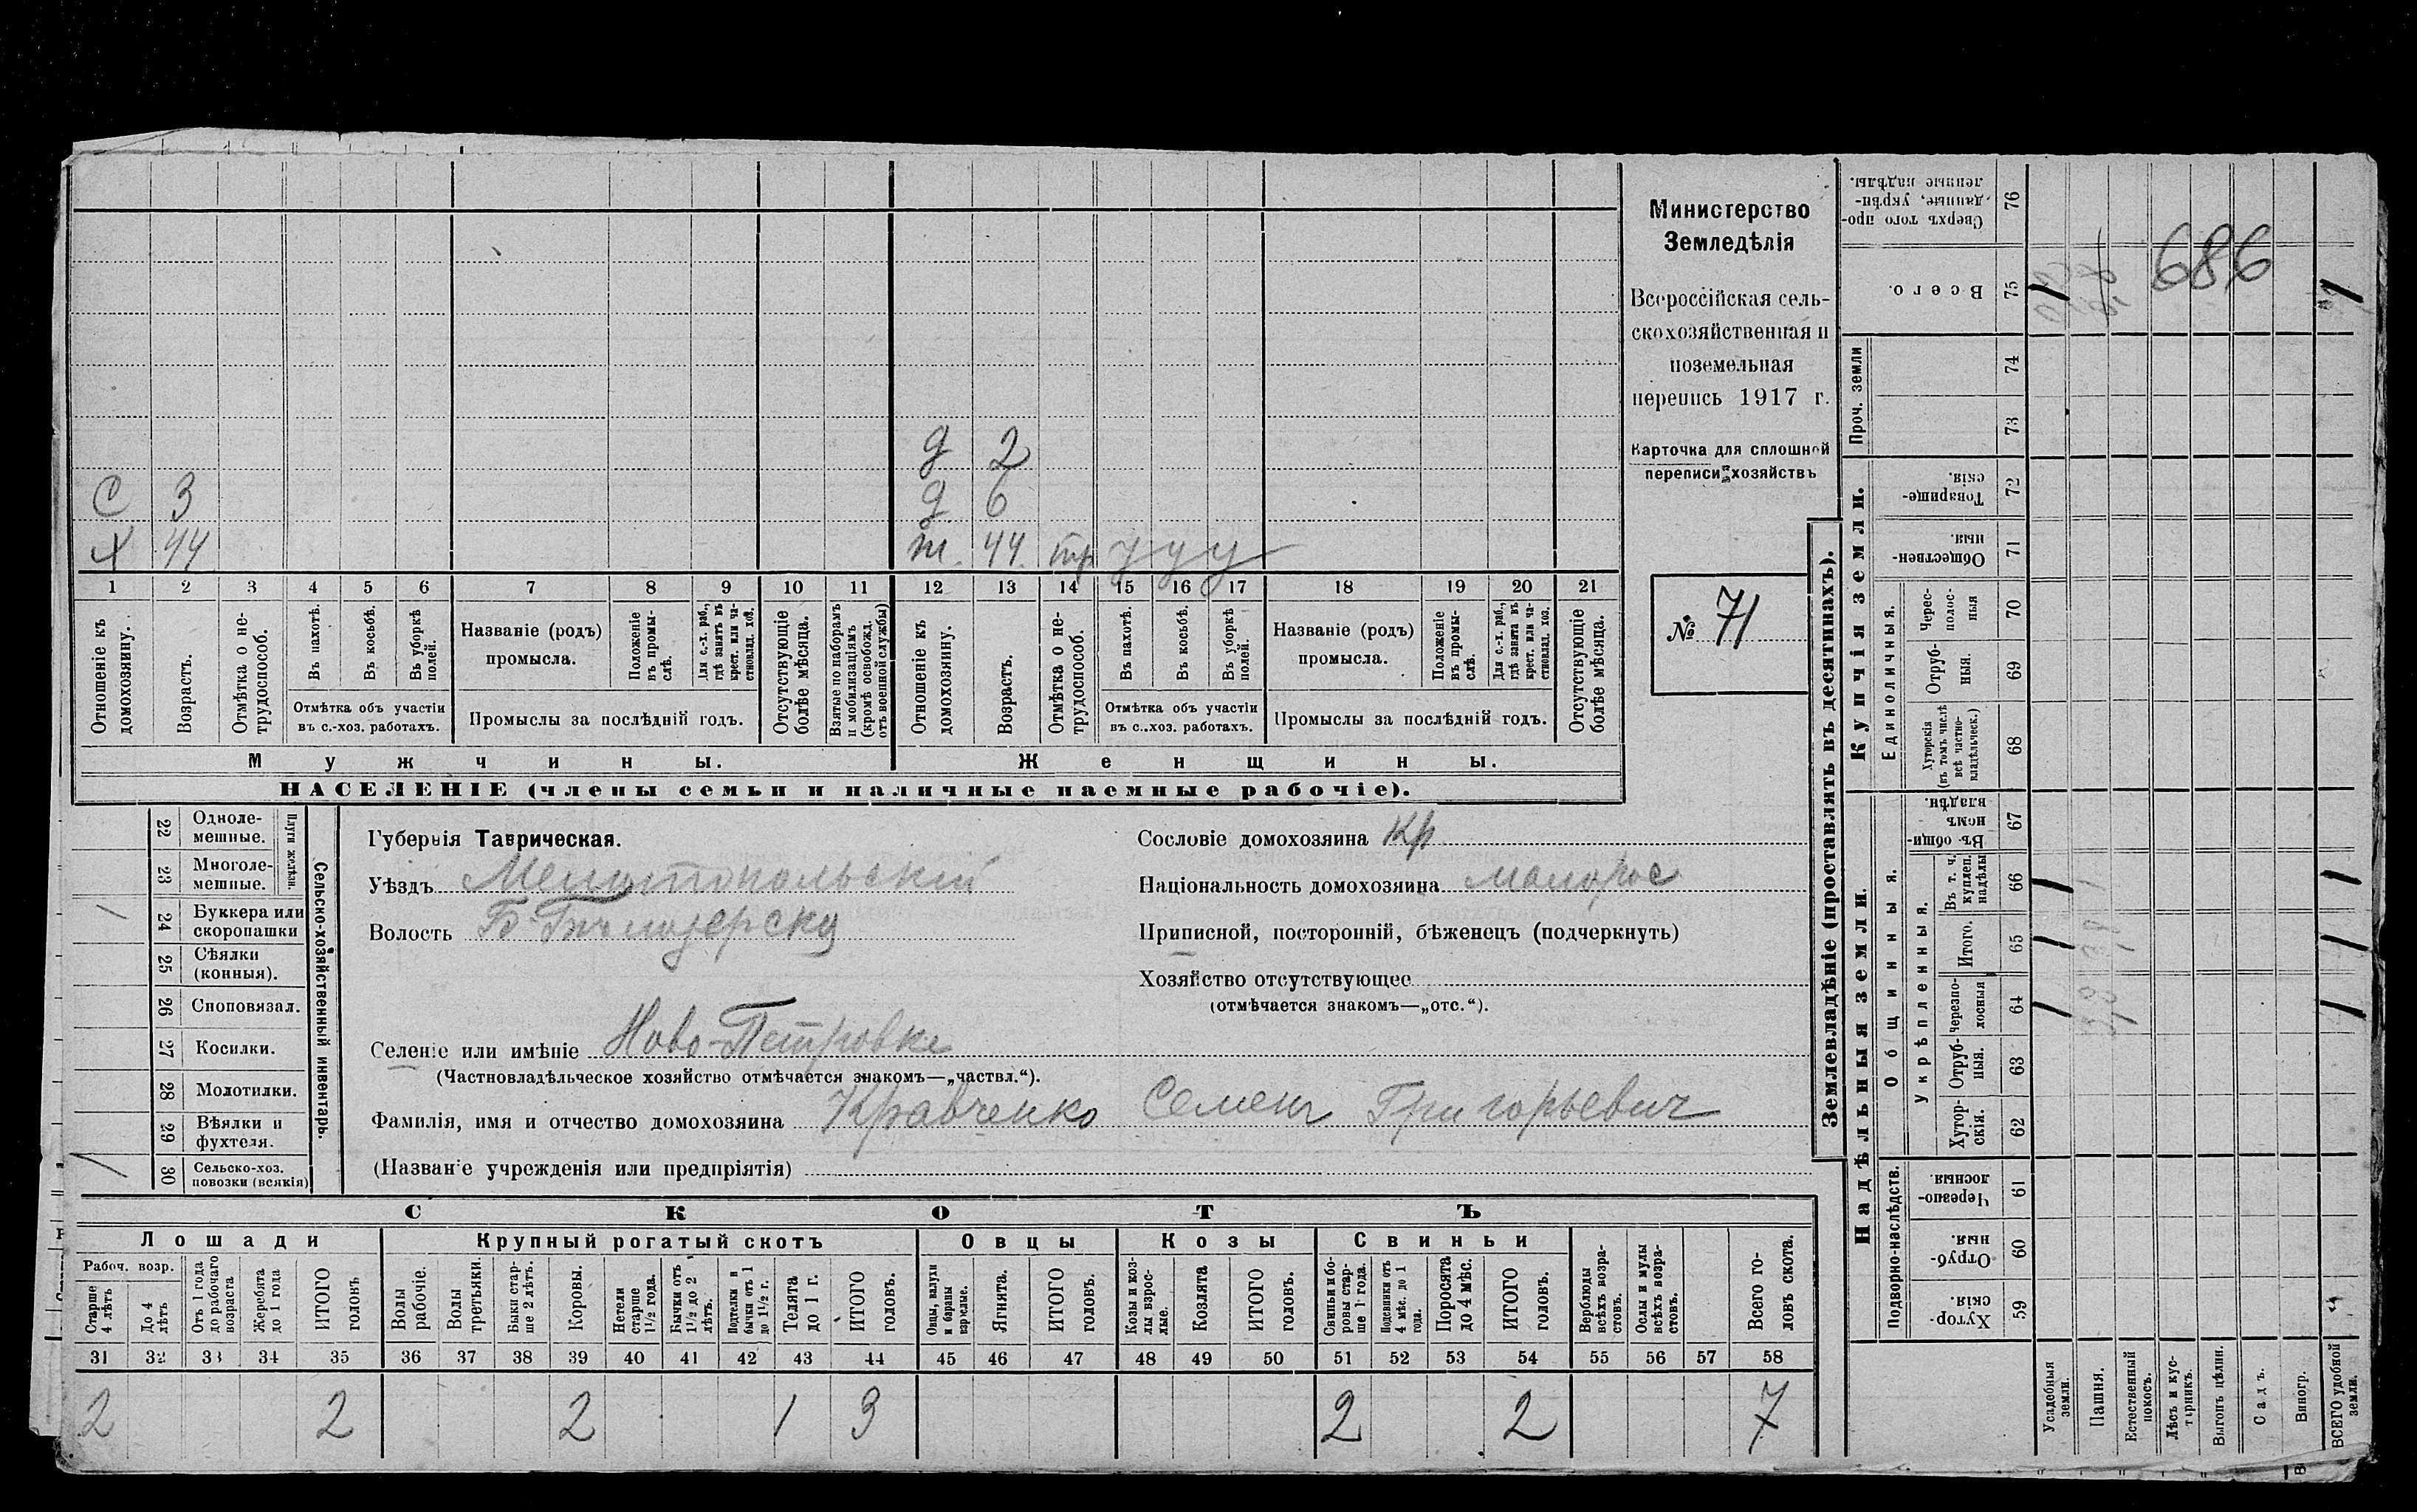 д 2
С 3 д 6
Х 44 ж. 44 тр у у у
1 2 3 4 5 6 7 8 9 10 11 12 13 14 15 16 17 18 19 20 21
Отношеніе къ домохозяину.
Возрастъ.
Отмѣтка о не-трудоспособ.
Въ пахотѣ.
Въ косьбѣ.
Въ уборкѣ полей.
Отмѣтка объ участіи
въ с.-хоз. работахъ.
Названіе (родъ)
промысла.
Положеніе въ промы-слѣ.
Для с.-х. раб., гдѣ занятъ въ крест. или ча-стновлад. хоз.
Промыслы за послѣдній годъ.
Отсутствующіе болѣе мѣсяца.
Взятые по наборамъ и мобилизаціямъ (кромѣ освобожд. отъ военной службы)
Отношеніе къ домохозяину.
Возрастъ.
Отмѣтка о не-трудоспособ.
Въ пахотѣ.
Въ косьбѣ.
Въ уборкѣ полей.
Отмѣтка объ участіи
въ с.-хоз. работахъ.
Названіе (родъ)
промысла.
Положеніе въ промы-слѣ.
Для с.-х. раб., гдѣ занята въ крест. или ча-стновлад. хоз.
Промыслы за послѣдній годъ.
Отсутствующіе болѣе мѣсяца.
Мужчины. Женщины.
НАСЕЛЕНІЕ (члены семьи и наличные наемные рабочіе).
Министерство
Земледѣлія
Всероссійская сель-
скохозяйственная и
поземельная
перепись 1917 г.
Карточка для сплошной
переписи хозяйствъ
№ 71
22 Одноле-мешные.
23 Многоле-мешные.
Плуги желѣзн.
24 Буккера или скоропашки
25 Сѣялки (конныя).
26 Сноповязал.
27 Косилки.
28 Молотилки.
29 Вѣялки и фухтеля.
30 Сельско-хоз. повозки (всякія)
Сельско-хозяйственный инвентарь.
Губернія Таврическая.
Уѣздъ Мелитопольскій
Волость Б-Бѣлозерска
Селеніе или имѣніе Ново-Петровка
(Частновладѣльческое хозяйство отмѣчается знакомъ—„частвл.“).
Фамилія, имя и отчество домохозяина Кравченко Семенъ Григорьевич
(Названіе учрежденія или предпріятія)
Сословіе домохозяина Кр
Національность домохозяина малорос
Приписной, посторонній, бѣженецъ (подчеркнуть)
Хозяйство отсутствующее
(отмѣчается знакомъ—„отс.“).
СКОТЪ
Лошади Крупный рогатый скотъ Овцы Козы Свиньи
Рабоч. возр.
Старше 4 лѣтъ
До 4 лѣтъ
Отъ 1 года до рабочаго возраста
Жеребята до 1 года
ИТОГО головъ
Волы рабочіе.
Волы третьяки.
Быки стар-ше 2 лѣтъ.
Коровы.
Нетели старше 1½ года.
Бычки отъ 1½ до 2 лѣтъ.
Подтелки и бычки отъ 1 до 1½ г.
Телята до 1 г.
ИТОГО головъ.
Овцы, валухи и бараны взрослые.
Ягнята.
ИТОГО головъ.
Козы и коз-лы взрос-лые.
Козлята
ИТОГО головъ.
Свиньи и бо-ровы стар-ше 1 года.
Подсвинки отъ 4 мѣс. до 1 года.
Поросята до 4 мѣс.
ИТОГО головъ.
Верблюды всѣхъ возра-стовъ.
Ослы и мулы всѣхъ возра-стовъ.
Всего го-ловъ скота.
31 32 33 34 35 36 37 38 39 40 41 42 43 44 45 46 47 48 49 50 51 52 53 54 55 56 57 58
2 2 2 1 3 2 2 7
Землевладѣніе (проставлять въ десятинахъ).
Купчія земли.
Надѣльныя земли.
76 Сверхъ того про-данные, укрѣп-ленные надѣлы.
75 Всего.
686
Проч. земли
74
73
72 Товарище-скія.
71 Обществен-ныя.
Единоличныя.
70 Черес-полос-ныя
69 Отруб-ныя.
68 Хуторскія (въ томъ числѣ всѣ частно-владѣльческ.)
67 Въ общин-номъ владѣн.
Общинныя.
Укрѣпленныя.
66 Въ т. ч. куплен. надѣлы
65 Итого.
64 Черезпо-лосныя
63 Отруб-ныя.
62 Хутор-скія.
Подворно-наслѣдств.
61 Черезпо-лосныя.
60 Отруб-ныя.
59 Хутор-скія.
Усадебныя земли.
Пашня.
Естественный покосъ.
Лѣсъ и кус-тарникъ.
Выгонъ цѣлин.
Садъ.
Виногр.
ВСЕГО удобной земли.